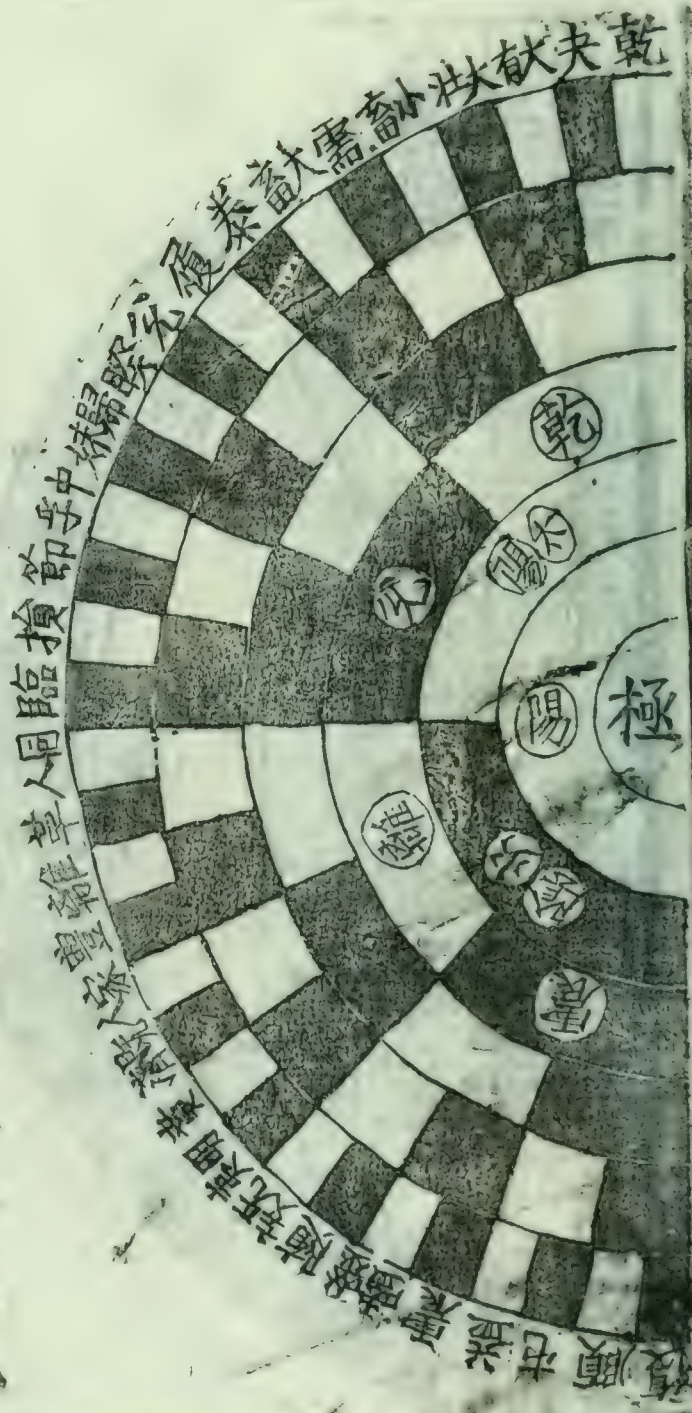 乾夬大有大壯小畜需大畜泰履兌睽歸妹中孚節損臨同人革離豐家人既濟賁明夷无妄隨噬嗑震益屯頤復
乾
兌
離
震
太陽
少陰
陽
極